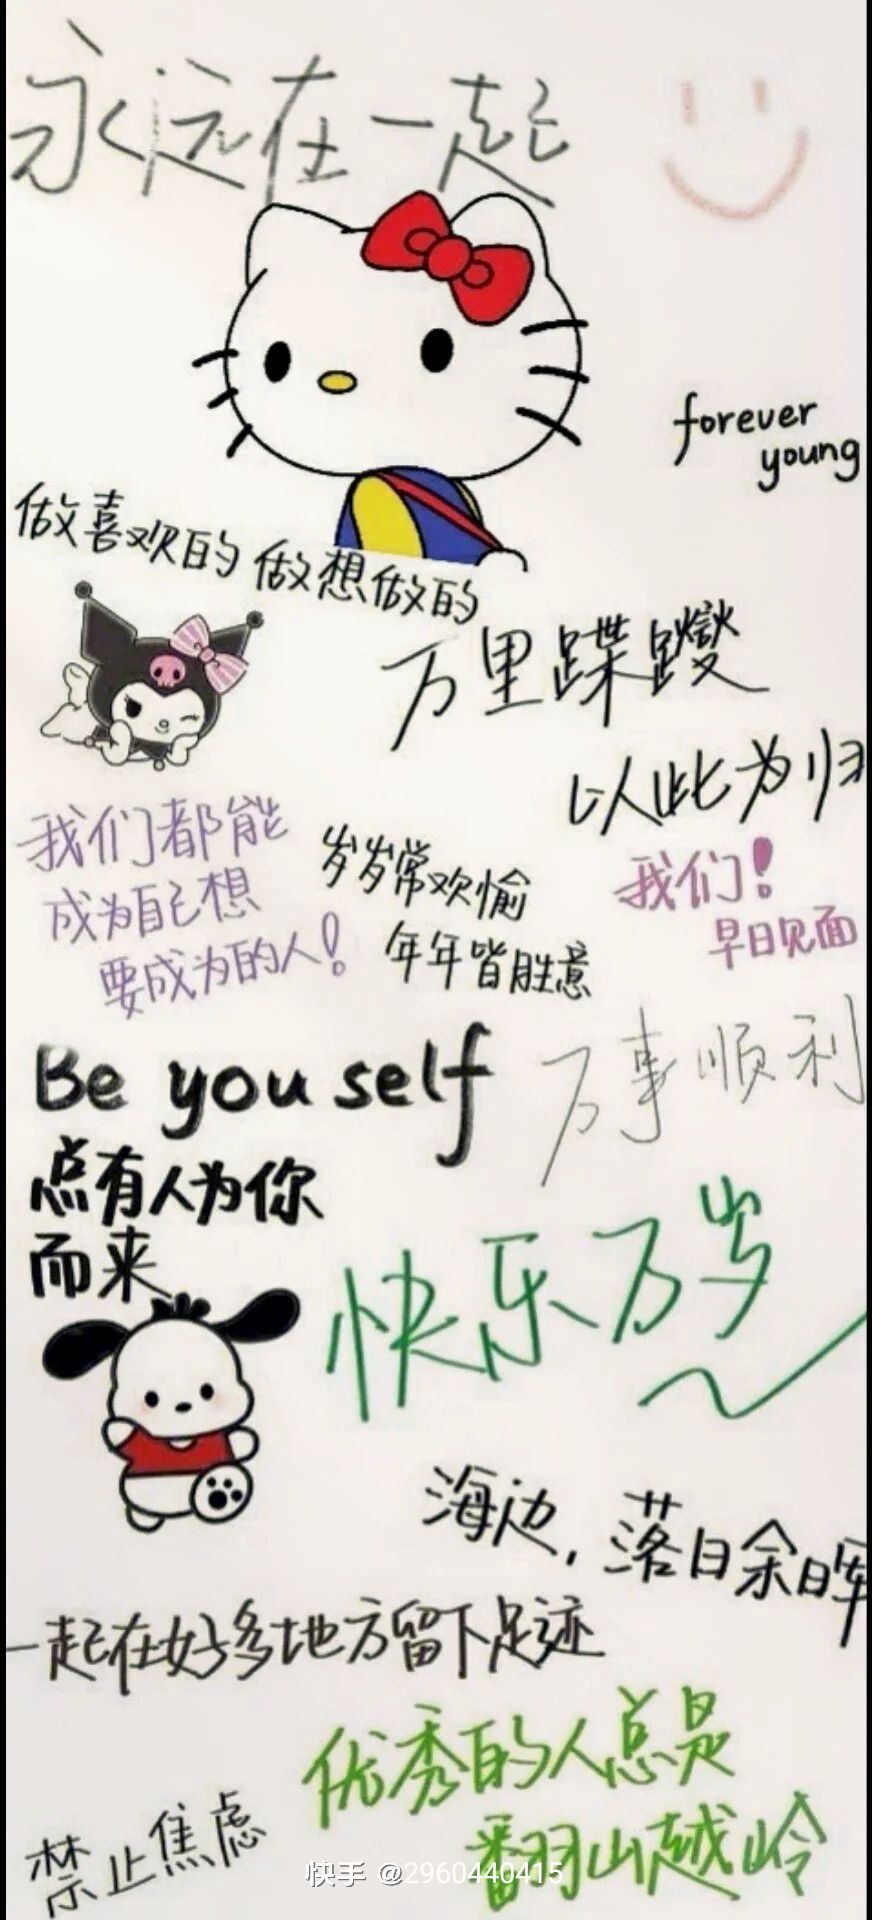 永远在一起
forever
young
做喜欢的 做想做的
万里蹀躞
以此为归
我们都能
成为自己想
要成为的人!
岁岁常欢愉
年年皆胜意
我们!
早日见面
Be you self
万事顺利
总有人为你
而来
快乐万岁
海边,落日余晖
一起在好多地方留下足迹
优秀的人总是
翻山越岭
禁止焦虑
快手 @2960440415